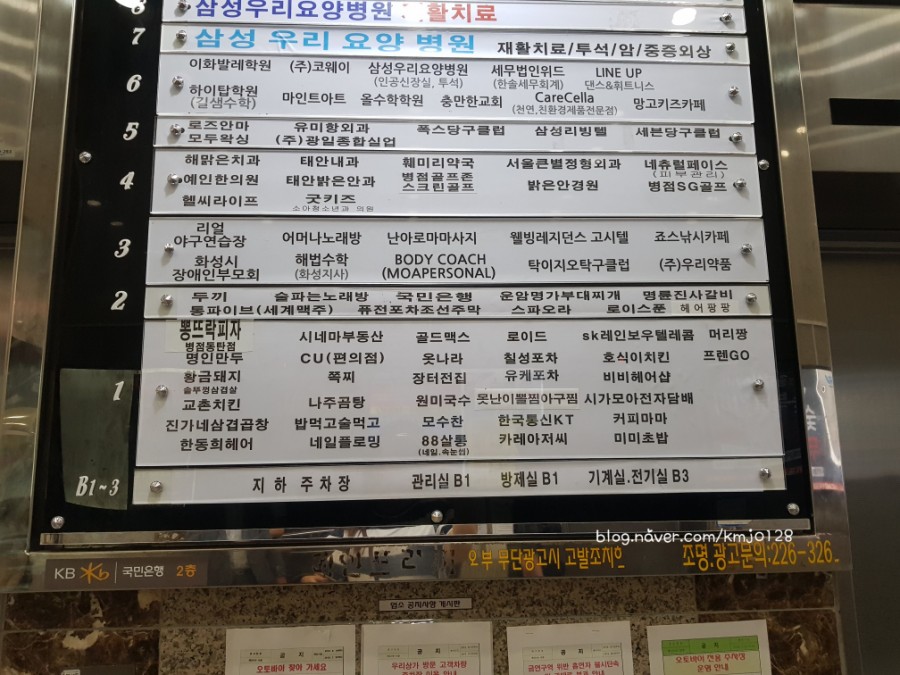 8 삼성우리요양병원 활치료
7 삼성 우리 요양 병원 재활치료/투석/암/중증외상
6 이화발레학원 (주)코웨이 삼성우리요양병원 세무법인위드 LINE UP
(인공신장실, 투석) (한솔세무회계) 댄스&휘트니스
하이탑학원 마인트아트 올수학학원 충만한교회 CareCella 망고키즈카페
(길샘수학) (천연,친환경제품전문점)
5 로즈안마 유미항외과 폭스당구클럽 삼성리빙텔 세븐당구클럽
모두왁싱 (주)광일종합실업
4 해맑은치과 태안내과 훼미리약국 서울큰별정형외과 네츄럴페이스
(피부관리)
예인한의원 태안밝은안과 병점골프존 밝은안경원 병점SG골프
스크린골프
헬씨라이프 굿키즈
소아청소년과 의원
3 리얼 어머나노래방 난아로마마사지 웰빙레지던스 고시텔 죠스낚시카페
야구연습장
화성시 해법수학 BODY COACH 탁이지오탁구클럽 (주)우리약품
장애인부모회 (화성지사) (MOAPERSONAL)
2 두끼 술파는노래방 국민은행 운암명가부대찌개 명륜진사갈비
통파이브(세계맥주) 퓨전포차조선주막 스파오라 로이스푼 헤어팡팡
1 뽕뜨락피자 시네마부동산 골드맥스 로이드 sk레인보우텔레콤 머리짱
병점동탄점
명인만두 CU(편의점) 옷나라 칠성포차 호식이치킨 프렌GO
황금돼지 쪽찌 장터전집 유케포차 비비헤어샵
솥뚜껑삼겹살
교촌치킨 나주곰탕 원미국수 못난이뽈찜아구찜 시가모아전자담배
진가네삼겹곱창 밥먹고술먹고 모수찬 한국통신KT 커피마마
한동희헤어 네일플로밍 88살롱 카레아저씨 미미초밥
(네일.속눈썹)
B1~3 지하 주차장 관리실 B1 방재실 B1 기계실.전기실 B3
blog.naver.com/kmjo128
오부 무단광고시 고발조치 조명.광고문의:226-326
KB 국민은행 2층
업주 공지사항 게시판
공 지 공 지 공 지 공 지
오토바이 찾아 가세요 우리상가 방문 고객차량 금연구역 위반 흡연자 불시단속 오토바이 전용 주차장
운영 안내